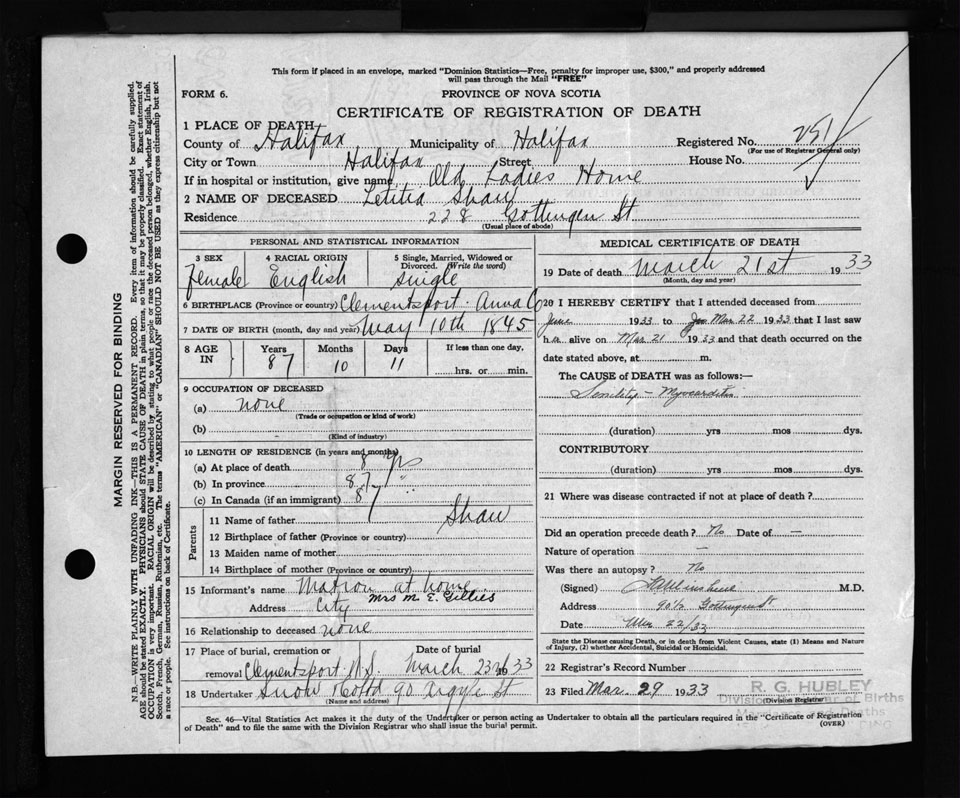 This form if placed in an envelope, marked "Dominion Statistics—Free, penalty for improper use, $300," and properly addressed
will pass through the Mail "FREE"
FORM 6.
PROVINCE OF NOVA SCOTIA
CERTIFICATE OF REGISTRATION OF DEATH
1 PLACE OF DEATH
County of Halifax Municipality of Halifax Registered No. 251
(For use of Registrar General only)
City or Town Halifax Street House No.
If in hospital or institution, give name Old Ladies Home
2 NAME OF DECEASED Letitia Shaw
Residence 228 Gottingen St.
(Usual place of abode)
PERSONAL AND STATISTICAL INFORMATION
3 SEX 4 RACIAL ORIGIN 5 Single, Married, Widowed or Divorced. (Write the word)
Female English Single
6 BIRTHPLACE (Province or country) Clementsport. Anna Co
7 DATE OF BIRTH (month, day and year) May 10th 1845
8 AGE IN Years Months Days If less than one day,
87 10 11 hrs. or min.
9 OCCUPATION OF DECEASED
(a) none
(Trade or occupation or kind of work)
(b)
(Kind of industry)
10 LENGTH OF RESIDENCE (in years and months)
(a) At place of death 8 yrs
(b) In province 87 "
(c) In Canada (if an immigrant) 87
Parents
11 Name of father Shaw
12 Birthplace of father (Province or country)
13 Maiden name of mother
14 Birthplace of mother (Province or country)
15 Informant's name Matron at home
Mrs M. E. Gillies
Address City
16 Relationship to deceased none
17 Place of burial, cremation or removal Clementsport N.S. Date of burial March 23rd 1933
18 Undertaker Snow & Co Ltd 90 Argyle St
(Name and address)
MEDICAL CERTIFICATE OF DEATH
19 Date of death March 21st 1933
(Month, day and year)
20 I HEREBY CERTIFY that I attended deceased from
June 1933 to Mar 22 1933 that I last saw
h er alive on Mar 21 1933 and that death occurred on the
date stated above, at m.
The CAUSE of DEATH was as follows:—
Senility – Myocarditis
(duration) yrs mos dys.
CONTRIBUTORY
(duration) yrs mos dys.
21 Where was disease contracted if not at place of death?
Did an operation precede death? No Date of —
Nature of operation —
Was there an autopsy? No
(Signed) M.D.
Address 90½ Gottingen St
Date Mar 22/33
State the Disease causing Death, or in death from Violent Causes, state (1) Means and Nature
of Injury, (2) whether Accidental, Suicidal or Homicidal.
22 Registrar's Record Number
23 Filed Mar. 29 1933 R. G. HUBLEY
(Division Registrar)
Division Registrar of Births
Marriages and Deaths
Sec. 46—Vital Statistics Act makes it the duty of the Undertaker or person acting as Undertaker to obtain all the particulars required in the "Certificate of Registration
of Death" and to file the same with the Division Registrar who shall issue the burial permit.
(OVER)
MARGIN RESERVED FOR BINDING
N.B.—WRITE PLAINLY WITH UNFADING INK—THIS IS A PERMANENT RECORD. Every item of information should be carefully supplied.
AGE should be stated EXACTLY. PHYSICIANS should STATE CAUSE OF DEATH in plain terms, so that it may be properly classified. Exact statement of
OCCUPATION is very important. RACIAL ORIGIN will be described by stating to what people or race the deceased person belonged, whether English, Irish,
Scotch, French, German, Russian, Ruthenian, etc. The terms "AMERICAN" or "CANADIAN" SHOULD NOT BE USED as they express citizenship but not
a race or people. See instructions on back of Certificate.